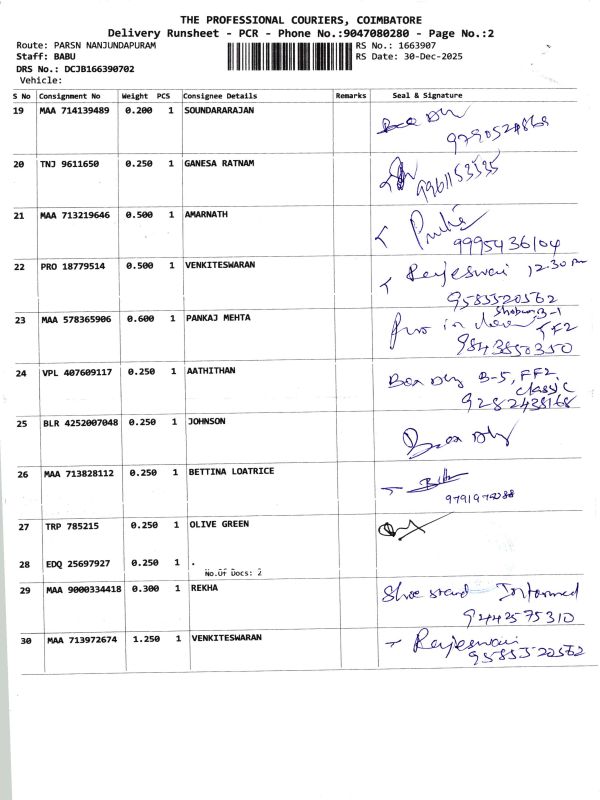 THE PROFESSIONAL COURIERS, COIMBATORE
Delivery Runsheet - PCR - Phone No.:9047080280 - Page No.:2
Route: PARSN NANJUNDAPURAM RS No.: 1663907
Staff: BABU RS Date: 30-Dec-2025
DRS No.: DCJB166390702
Vehicle:
S No Consignment No Weight PCS Consignee Details Remarks Seal & Signature
19 MAA 714139489 0.200 1 SOUNDARARAJAN Box Dly
20 TNJ 9611650 0.250 1 GANESA RATNAM 9961153535
21 MAA 713219646 0.500 1 AMARNATH
9995436104
22 PRO 18779514 0.500 1 VENKITESWARAN Rajeswari 12.30 Pm
9585520562
23 MAA 578365906 0.600 1 PANKAJ MEHTA B-1
FF2
9843850350
24 VPL 407609117 0.250 1 AATHITHAN Box Dly B-5, FF2
classic
9282438168
25 BLR 4252007048 0.250 1 JOHNSON Box Dly
26 MAA 713828112 0.250 1 BETTINA LOATRICE
27 TRP 785215 0.250 1 OLIVE GREEN
28 EDQ 25697927 0.250 1 .
No.Of Docs: 2
29 MAA 9000334418 0.300 1 REKHA Shoe stand Informed
9442575310
30 MAA 713972674 1.250 1 VENKITESWARAN Rajeswari
9585520562